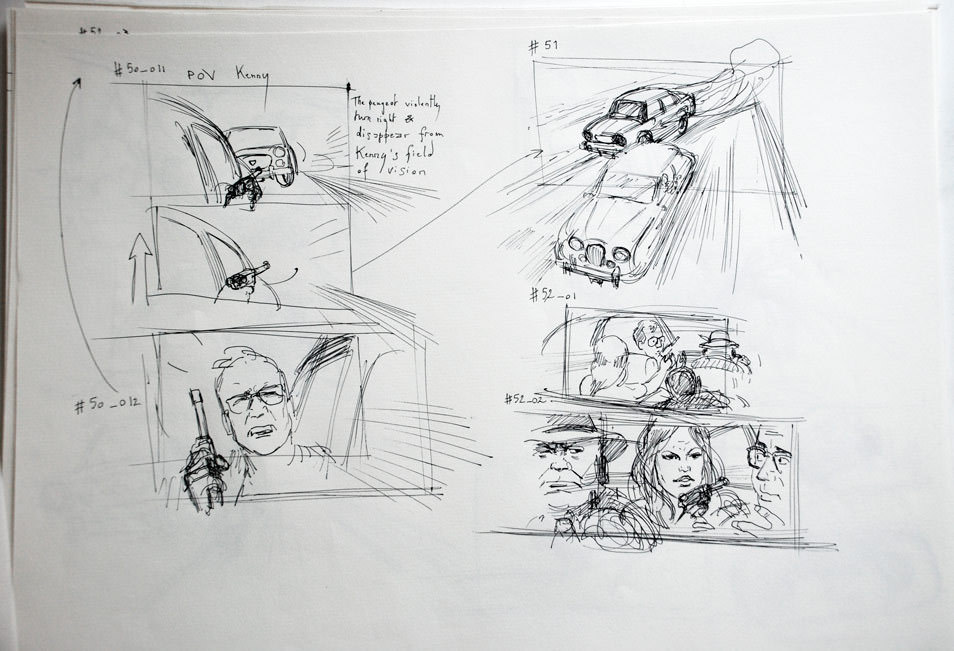 #50_011 POV Kenny
The peugeot violently
turn right &
disappear from
Kenny's field
of vision
#50_012
#51
#52_01
#52_02